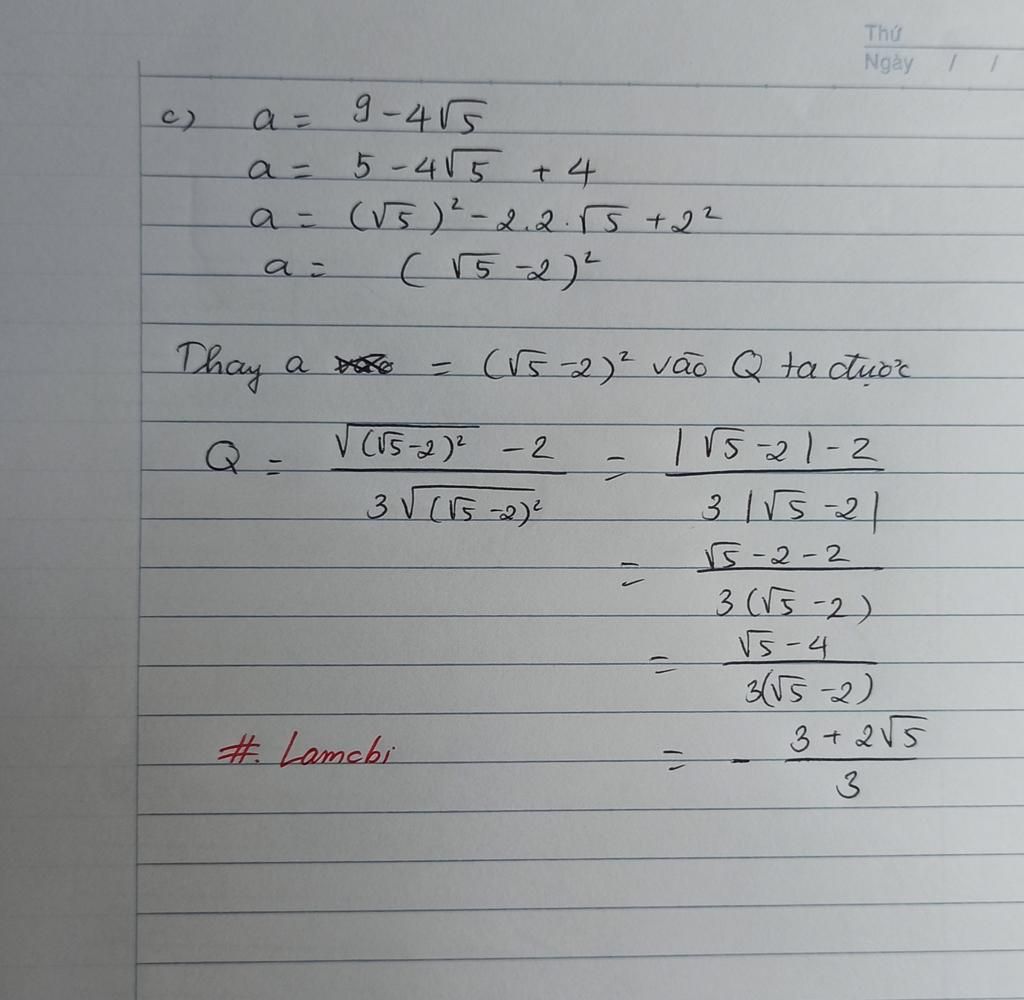 Thứ
Ngày / /
c) a = 9 - 4√5
a = 5 - 4√5 + 4
a = (√5)² - 2.2.√5 + 2²
a = (√5 - 2)²
Thay a = (√5 - 2)² vào Q ta được
Q = (√((√5-2)²) - 2) / (3√((√5-2)²)) = (|√5 - 2| - 2) / (3|√5 - 2|)
= (√5 - 2 - 2) / (3(√5 - 2))
= (√5 - 4) / (3(√5 - 2))
#. Lamcbi = - (3 + 2√5) / 3